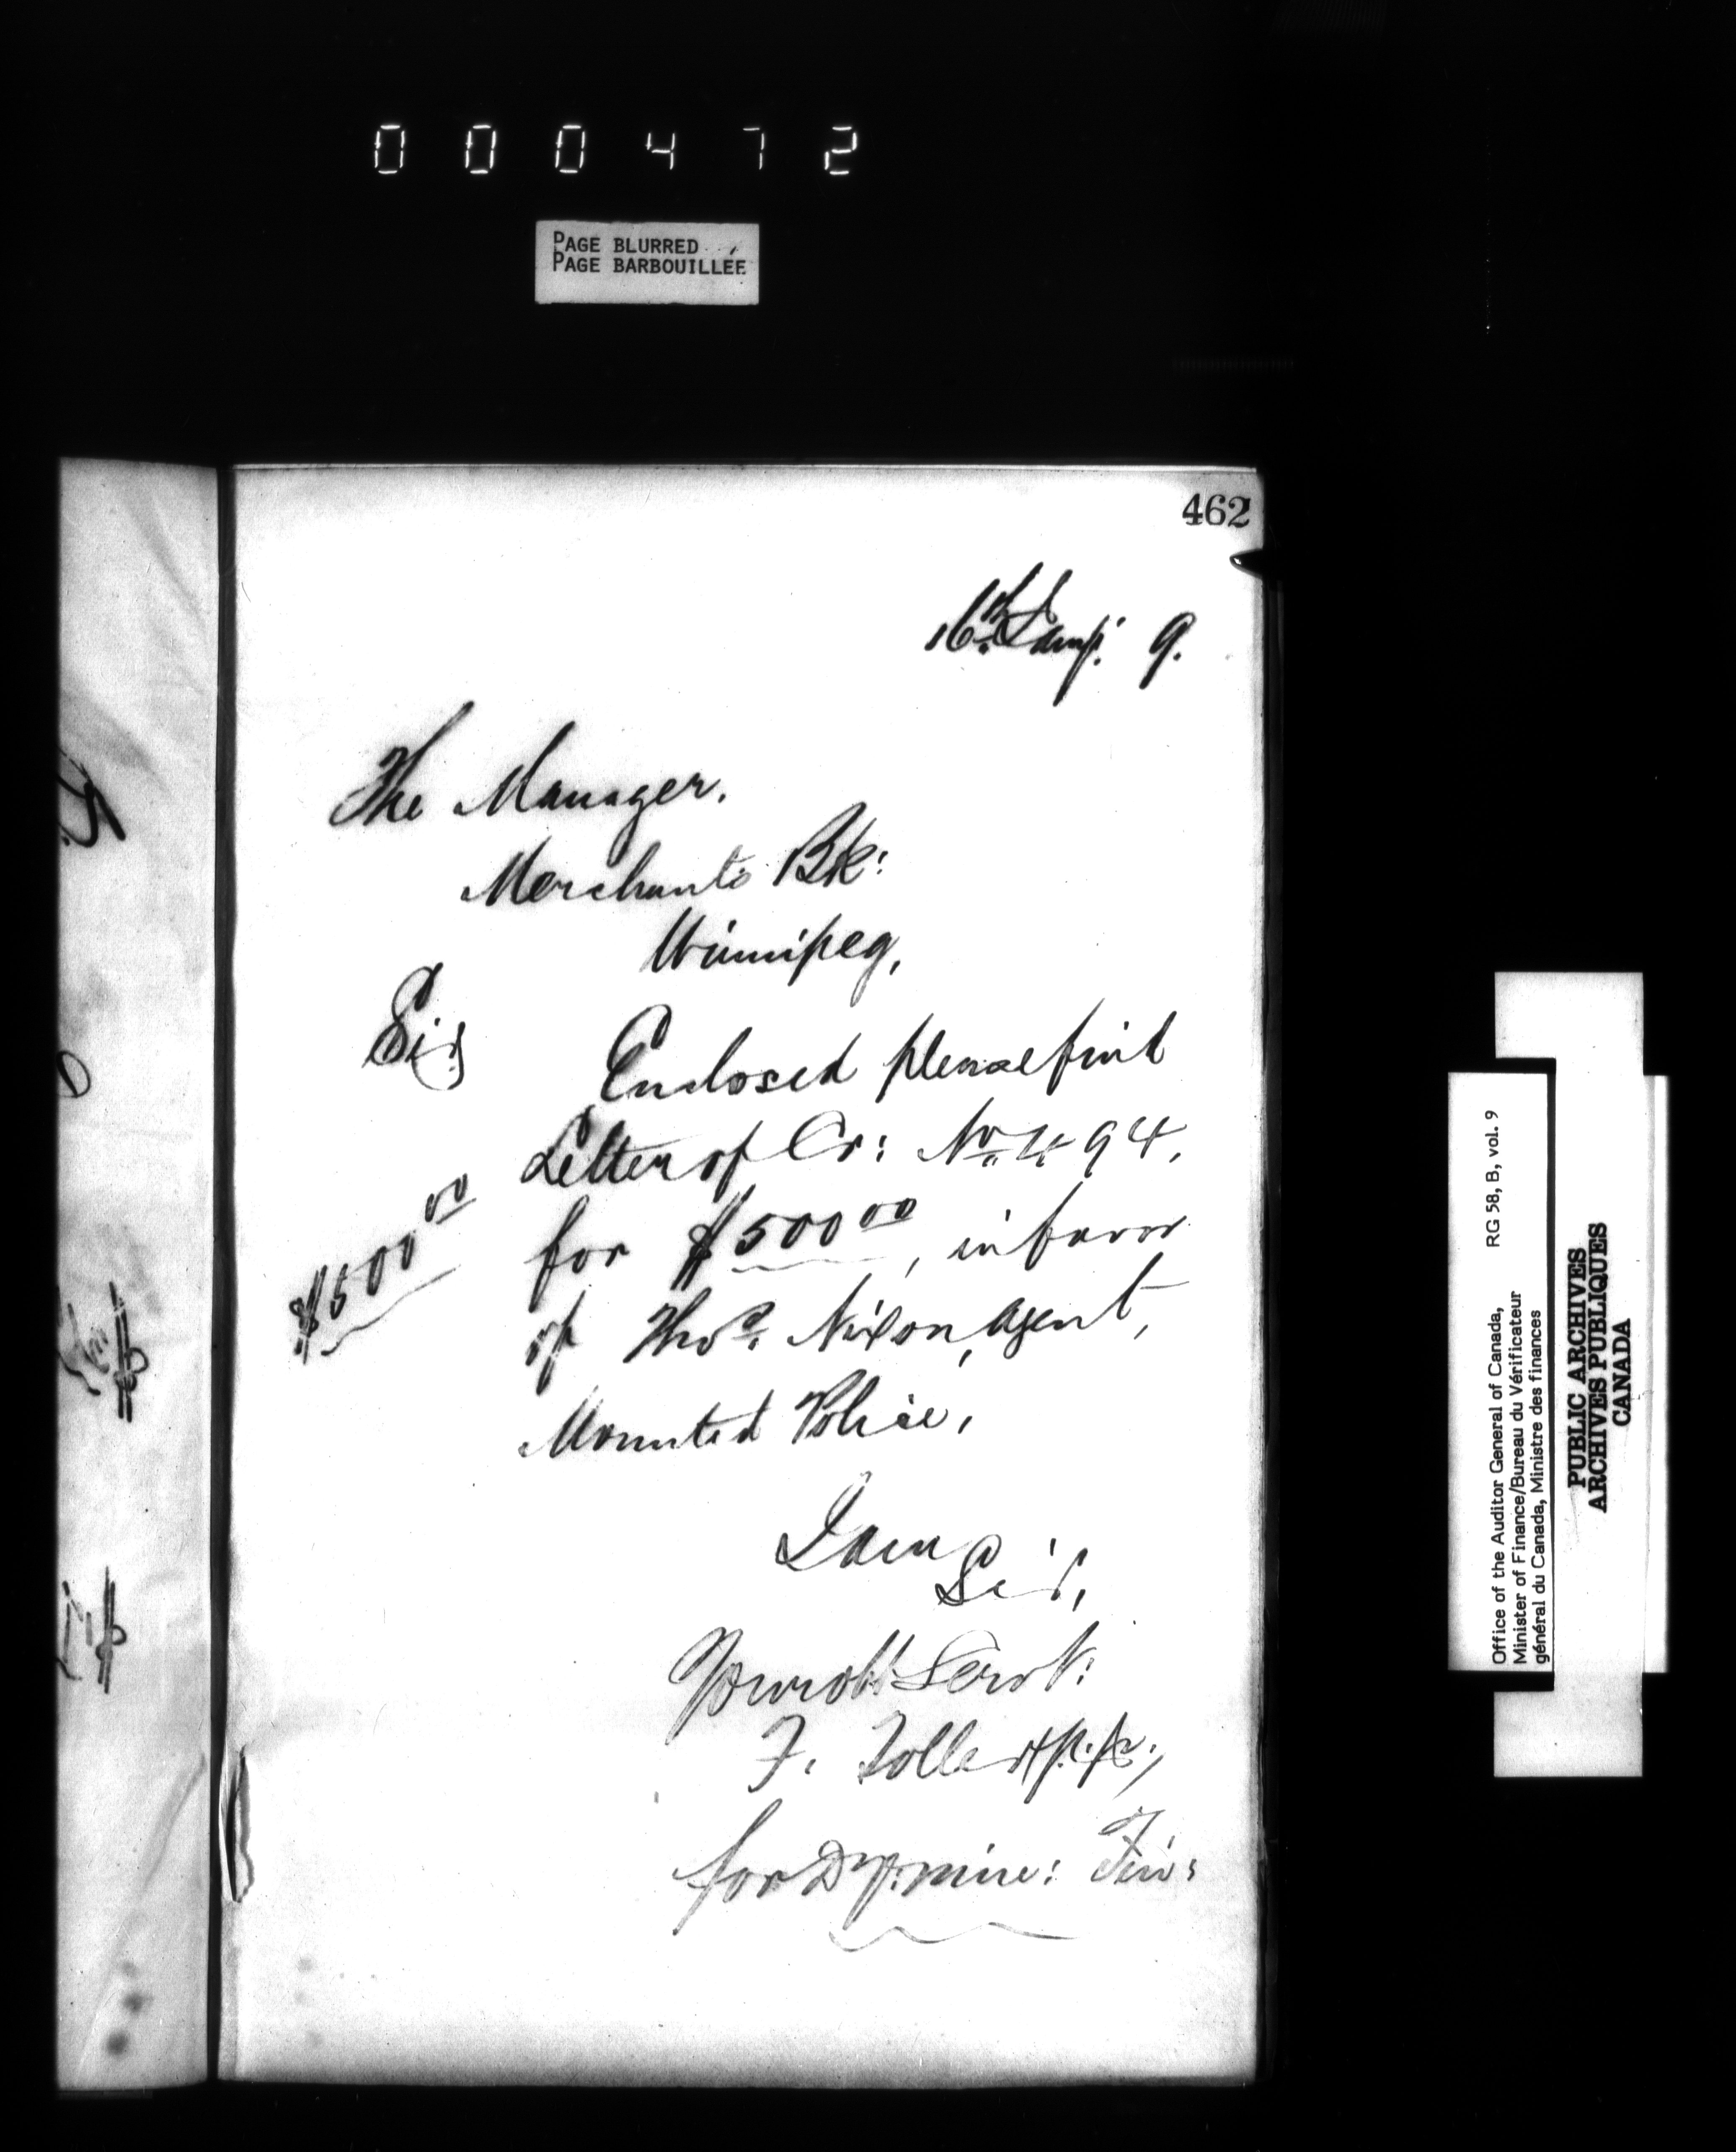 000472
PAGE BLURRED
PAGE BARBOUILLÉE
462
16th Jany. 9.
The Manager.
Merchants Bk:
Winnipeg,
Sir
Enclosed please find
Letter of Cr: No. 494,
for $500 00, in favor
$500 00
of Thos. Nixon, Agent,
Mounted Police,
I am
Sir,
Your obt Servt:
F. Toller
for Dy. min: Fin:
Office of the Auditor General of Canada, RG 58, B, vol. 9
Minister of Finance/Bureau du Vérificateur
général du Canada, Ministre des finances
PUBLIC ARCHIVES
ARCHIVES PUBLIQUES
CANADA